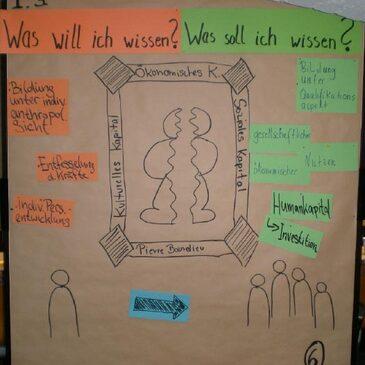 Was will ich wissen?
Was soll ich wissen?
• Bildung
unter indiv.
anthropol.
Sicht
• Entfesselung
d. Kräfte
• Indiv. Pers.
entwicklung
Ökonomisches K.
Kulturelles Kapital
Soziales Kapital
Pierre Bourdieu
Bildung
unter
Qualifikations
aspekt
gesellschaftlicher
ökonomischer
Nutzen
Humankapital
Investition
6